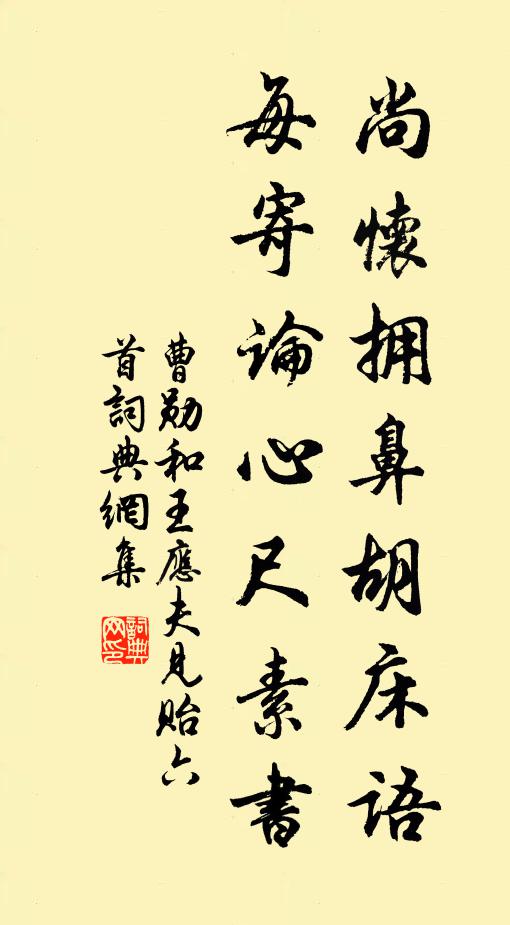 尚懷拥鼻胡床語
每寄論心尺素書
曹勛和王應夫見貽六
首詞典網集
詞典
网印